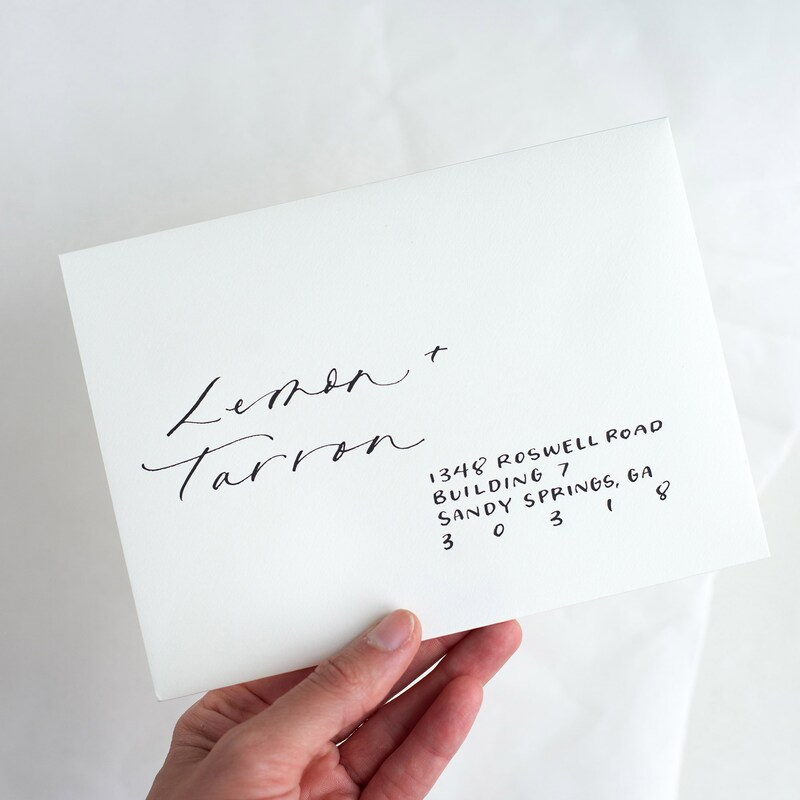 Lemon +
Tarron
1348 ROSWELL ROAD
BUILDING 7
SANDY SPRINGS, GA
3 0 3 1 8